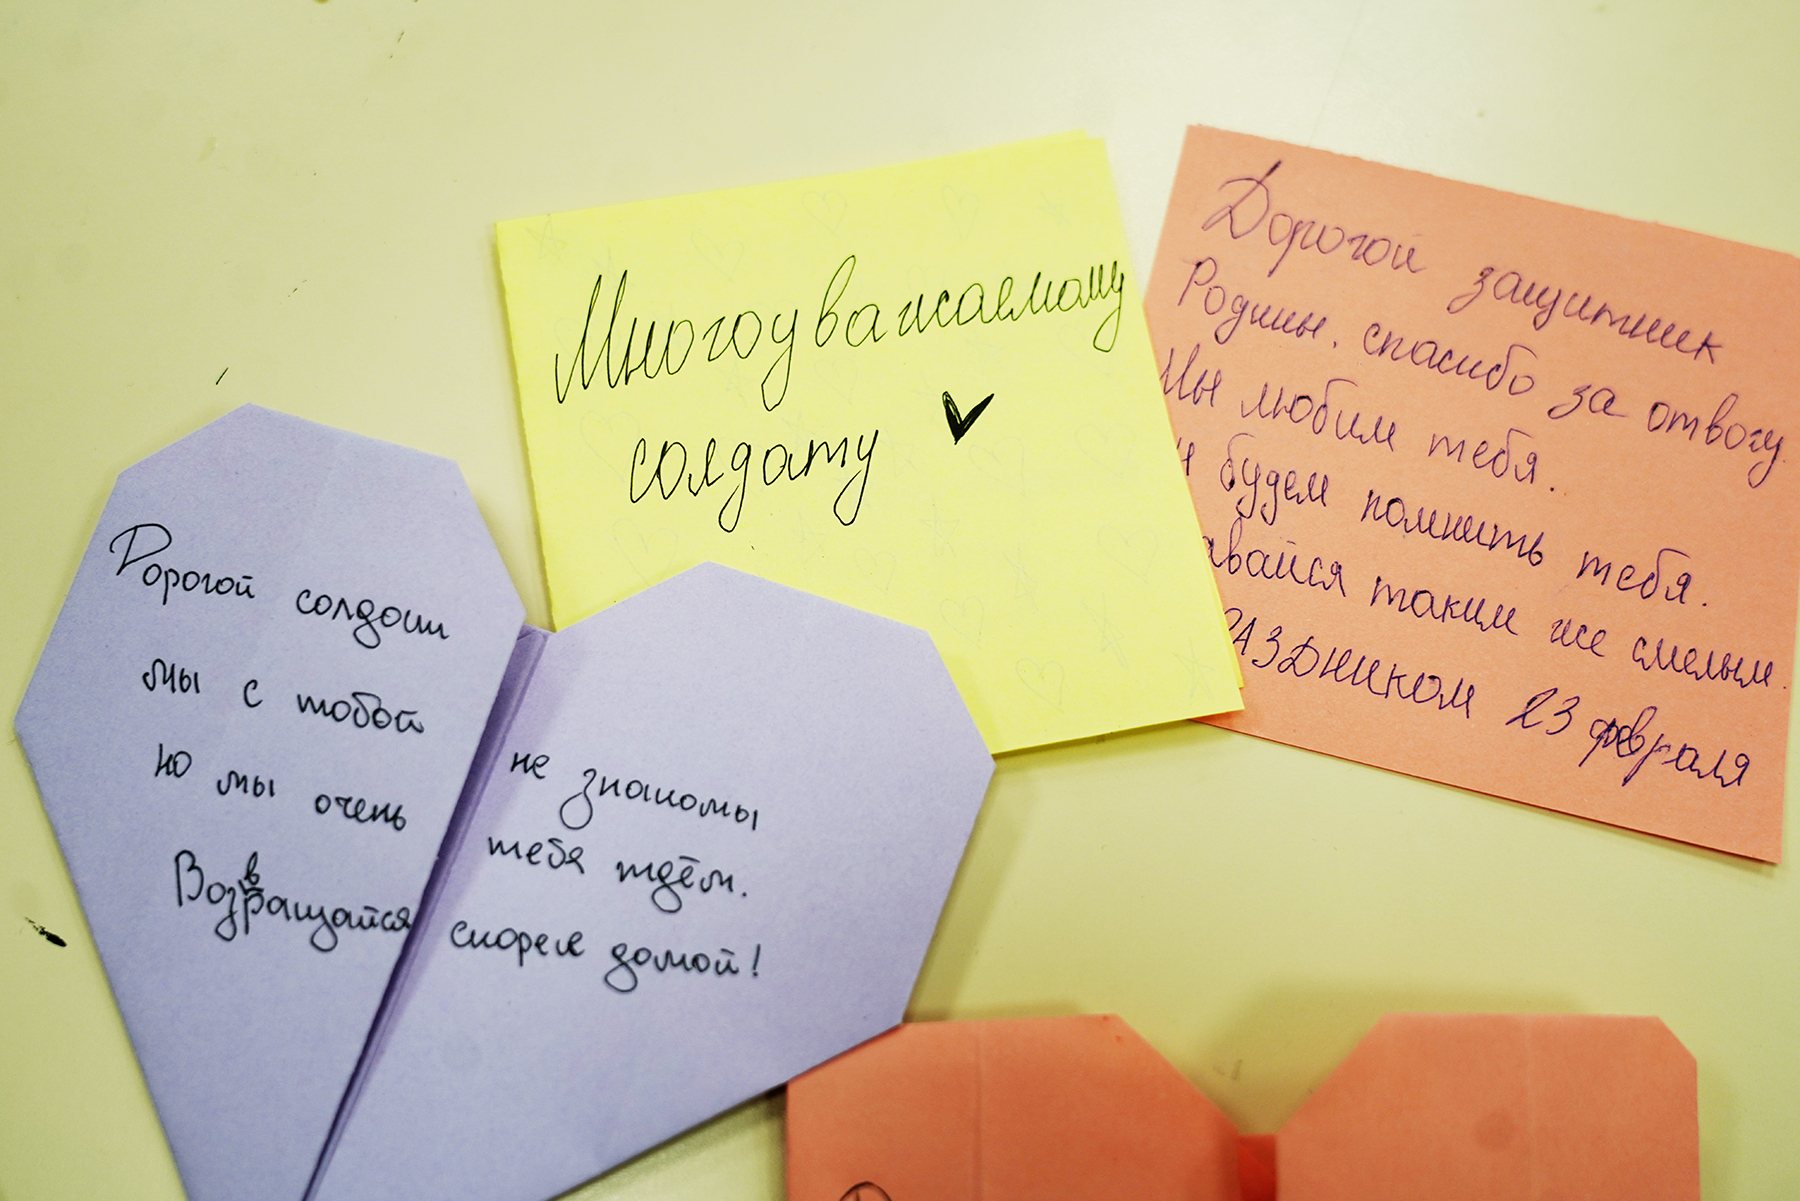 Многоуважаемому
солдату
Дорогой защитник
Родины. спасибо за отвагу.
Мы любим тебя.
и будем помнить тебя.
авайся таким же смелым.
РАЗДНИКОМ 23 февраля
Дорогой солдат
мы с тобой не знакомы
но мы очень тебя ждём.
Возвращайся скорее домой!